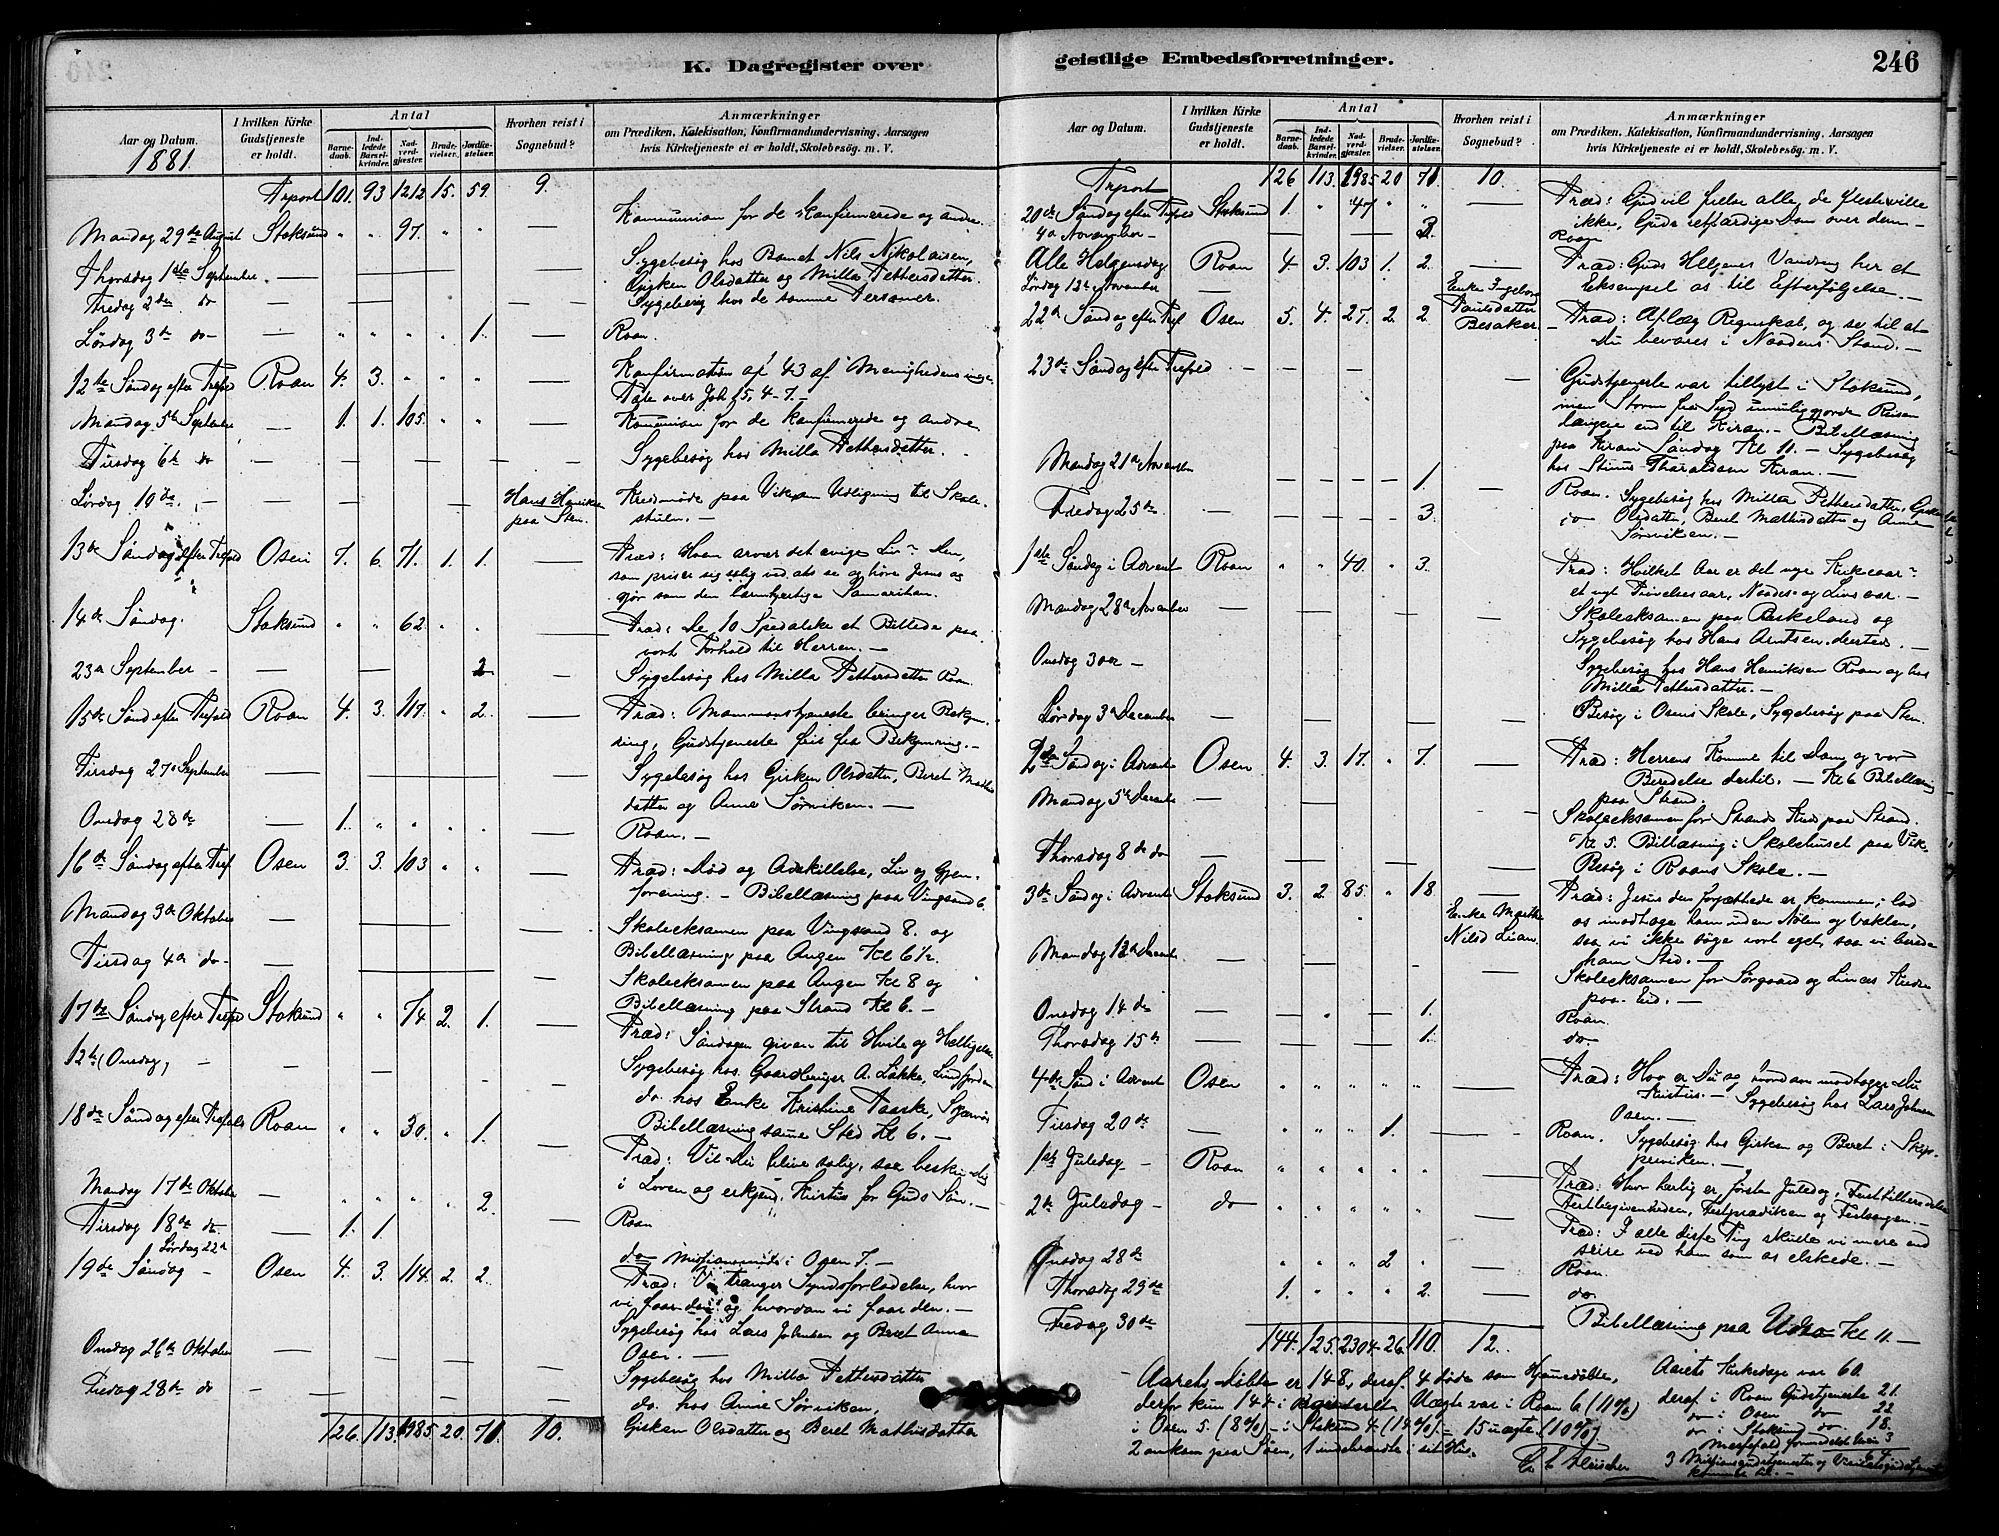 K. Dagregister over geistlige Embedsforretninger. 246
Aar og Datum. I hvilken Kirke Gudstjeneste er holdt. Antal Barnedaab. Indledede Barselkvinder. Nadverdgjæster. Brudevielser. Jordfæstelser. Hvorhen reist i Sognebud? Anmærkninger
om Prædiken, Katekisation, Konfirmandundervisning, Aarsagen
hvis Kirketjeneste ei er holdt, Skolebesøg. m. V.
1881.
Trport 101. 93 1212 15. 59. 9.
Mandag 29de August Stoksund " " 97. " " — Kommunion for de konfirmerede og andre.
Thorsdag 1ste September — Sygebesøg hos Barnet Nils Nikolaisen,
Girken Olsdatter og Milla Pettersdatter.
Fredag 2de do — Sygebesøg hos de samme Personer.
Lørdag 3de do — " " " " 1. — Roan.
12te Søndag efter Trefold Roan 4. 3. " " " — Konfirmation af 43 af Menighedens unge.
Tale over Joh 15, 4-7. —
Mandag 5te September — 1. 1. 105. " " — Kommunion for de konfirmerede og andre
Tirsdag 6te do — Sygebesøg hos Milla Pettersdatter.
Lørdag 10de — Hans Henriksen paa Sten. Kredsmøde paa Udligning til Skole-
stuen. —
13de Søndag efter Trefold Osen 7. 6. 71. 1. 1. — Præd: Hvem arver det evige Liv? Den,
som priser sig salig ved at se og høre Jesus og
gjør som den barmhjertige Samaritan.
14de Søndag. Stoksund " " 62. " " — Præd: De 10 Spedalske et Billede paa
vort Forhold til Herren. —
23de September — 2 — Sygebesøg hos Milla Pettersdatter Roan.
15de Sønd efter Trefold Roan 4. 3. 117. " 2. — Præd: Mammonstjeneste bringer Bekym-
ring, Gudstjeneste fri fra Bekymring. —
Tirsdag 27de September — Sygebesøg hos Girken Olsdatter, Beret Mathis-
datter og Anne Sørviken. —
Onsdag 28de — 1. " " " " — Roan. —
16de Søndag efter Tref. Osen 3. 3. 103 " " — Præd: Død og Adskillelse, Liv og Gjen-
forening. — Bibellæsning paa Vingsand 6.
Mandag 3de Oktober — Skoleeksamen paa Vingsand 8. og
Bibellæsning paa Angen Kl 6½.
Tirsdag 4de do — Skoleeksamen paa Angen Kl 8 og
Bibellæsning paa Strand Kl 6. —
17de Søndag efter Trefold Stoksund " " 74 2. 1. — Præd: Søndagen given til Hvile og Helligelse
12te (Onsdag) — Sygebesøg hos Gaardbruger A. Løkke,
do. hos Enke Kristine
Bibellæsning samme Sted Kl 6. —
18de Søndag efter Trefold Roan " " 30. " 1. — Præd: Vil Du blive salig, saa
i Loven og erkjend Kristus for Guds Søn. —
Mandag 17de Oktober — " " " " 2. — Roan
Tirsdag 18de do — 1. 1 — do
Lørdag 22de Missionsmøde i Osen 7. —
19de Søndag — Osen 4. 3. 114. 2. 2. — Præd: Vi trænger Syndsforladelse, hvor
vi faar den og hvordan vi faar den. —
Onsdag 26de Oktober — Sygebesøg hos Lars Johnsen og Beret Anna
Osen. —
Fredag 28de do — Sygebesøg hos Milla Pettersdatter
do. hos Anne Sørviken,
126. 113. 1985. 20. 71. 10. Girken Olsdatter og Beret Mathisdatter
Aar og Datum. I hvilken Kirke Gudstjeneste er holdt. Antal Barnedaab. Indledede Barselkvinder. Nadverdgjæster. Brudevielser. Jordfæstelser. Hvorhen reist i Sognebud? Anmærkninger
om Prædiken, Katekisation, Konfirmandundervisning, Aarsagen
hvis Kirketjeneste ei er holdt, Skolebesøg m. V.
Trport 126 113. 1985 20 71. 10.
20de Søndag efter Trefold Stoksund 1. " 47 " " — Præd: Gud vil frelse alle, de fleste ville
ikke, Guds retfærdige Dom over dem. —
4de November — 3. Roan
Alle Helgensdag Roan 4 3. 103 1. 2. — Præd: Guds Helgenes Vandring her et
Lørdag 12te November — Eksempel os til Efterfølgelse. —
22de Søndag efter Tref. Osen 5. 4. 27. 2. 2. Enke Ingeborg Paulsdatter Besaker — Præd: Aflæg Regnskab, og se til at
Du bevares i Naadens Stand. —
23de Søndag efter Trefold — Gudstjeneste var tillyst i Stoksund,
men Storm fra Syd umuliggjorde Reisen
længere end til Kiran. — Bibellæsning
paa Kiran Søndag Kl 11. — Sygebesøg
hos Tharaldsen Kiran. —
Mandag 21de November — 1. — Roan. Sygebesøg hos Milla Pettersdatter, Girken
Fredag 25de — 3. do Olsdatter, Beret Mathisdatter og Anne
Sørviken. —
1ste Søndag i Advent Roan " " 40. " 3. — Præd: Hvilket Aar er det nye Kirkeaar?
et nyt Naades- og Livsaar. —
Mandag 28de November — Skoleeksamen paa Beskeland og
Sygebesøg hos Hans Arntsen dersted. —
Onsdag 30de — Sygebesøg hos Hans Henriksen Roan og hos
Milla Pettersdatter. —
Lørdag 3de December — Besøg i Osens Skole, Sygebesøg paa Sten.
2de Søndag i Advent Osen 4. 3. 17. " 7. — Præd: Herrens Komme til Dom og vor
Beredelse dertil. — Kl 6 Bibellæsning
paa Strand.
Mandag 5te Decemb — Skoleeksamen for Strands Kreds paa Strand.
Kl 5. Bibellæsning i Skolehuset paa Vik.
Thorsdag 8de do — Besøg i Roans Skole. —
3de Søndag i Advent Stoksund 3. 2. 85. " 18. Enke Marthe Nilsd Lian. Præd: Jesus den forjættede er kommen; lad
os modtage ham uden Nølen og Vaklen,
saa vi ikke søge vort eget, saa vi berede
ham Sted. —
Mandag 12te Decemb — Skoleeksamen for Sørgaard og Kredse
paa Eid. —
Onsdag 14de — 1. Roan.
Thorsdag 15de — 1. do —
4de Sønd i Advent Osen " " " " " — Præd: Hvo er Du og hvordan modtager Du
Kristus. — Sygebesøg hos Lars Johnsen
Osen. —
Tirsdag 20de — " " " 1. " — Roan. Sygebesøg hos Girken og Beret i
1ste Juledag — Roan " " " " " — Præd: Hvor herlig er første Juledag,
Festbegivenheden, Festprædiken og Festsangen. —
2de Juledag — do " " " " " — Præd: I alle disse Ting skulle vi mere end
seire ved ham som os elskede. —
Onsdag 28de — " " " 2 " Roan.
Thorsdag 29de — 1. " " " 2. do.
Fredag 30de — Bibellæsning paa Kl 11. —
144. 125. 2304. 26. 110. 12.
Aarets døbte er 148, deraf 4 døde som hjemmedøbte,
derfor kun 144 i Uægte var i Roan 6 (11%)
i Osen 5. (8%) — i Stoksund 4 (14%). — 15 uægte (10%)
2 omkom paa Søen, 1 indebrændte i sit Hus.
Aarets Kirkedage var 60.
deraf i Roan Gudstjeneste 21.
do i Osen do 22
do i Stoksund do 18.
3
64
3 Missionsgudstjenester og Visitatsgudstjeneste